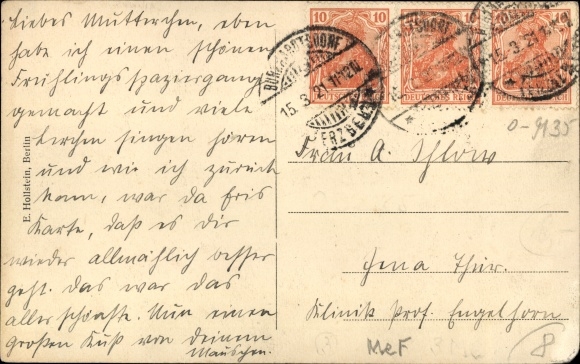 Liebes Mutterchen, eben
habe ich einen schönen
Frühlingsspaziergang
gemacht und viele
Lerchen singen hören
und wie ich zurück
kam, war da
Karte, daß es dir
wieder allmählich besser
geht. das war das
allerschönste. Nun einen
großen Kuß von deinem
Mäuschen.
E. Hollstein, Berlin
10 10
10
10
DEUTSCHES REICH
DEUTSCHES REICH
BURKHARDTSDORF
15.3.21
(ERZGEB.)
0-9135
Frau A. Ihlow
Jena Thür.
Klinik Prof. Engelhorn
MeF
8